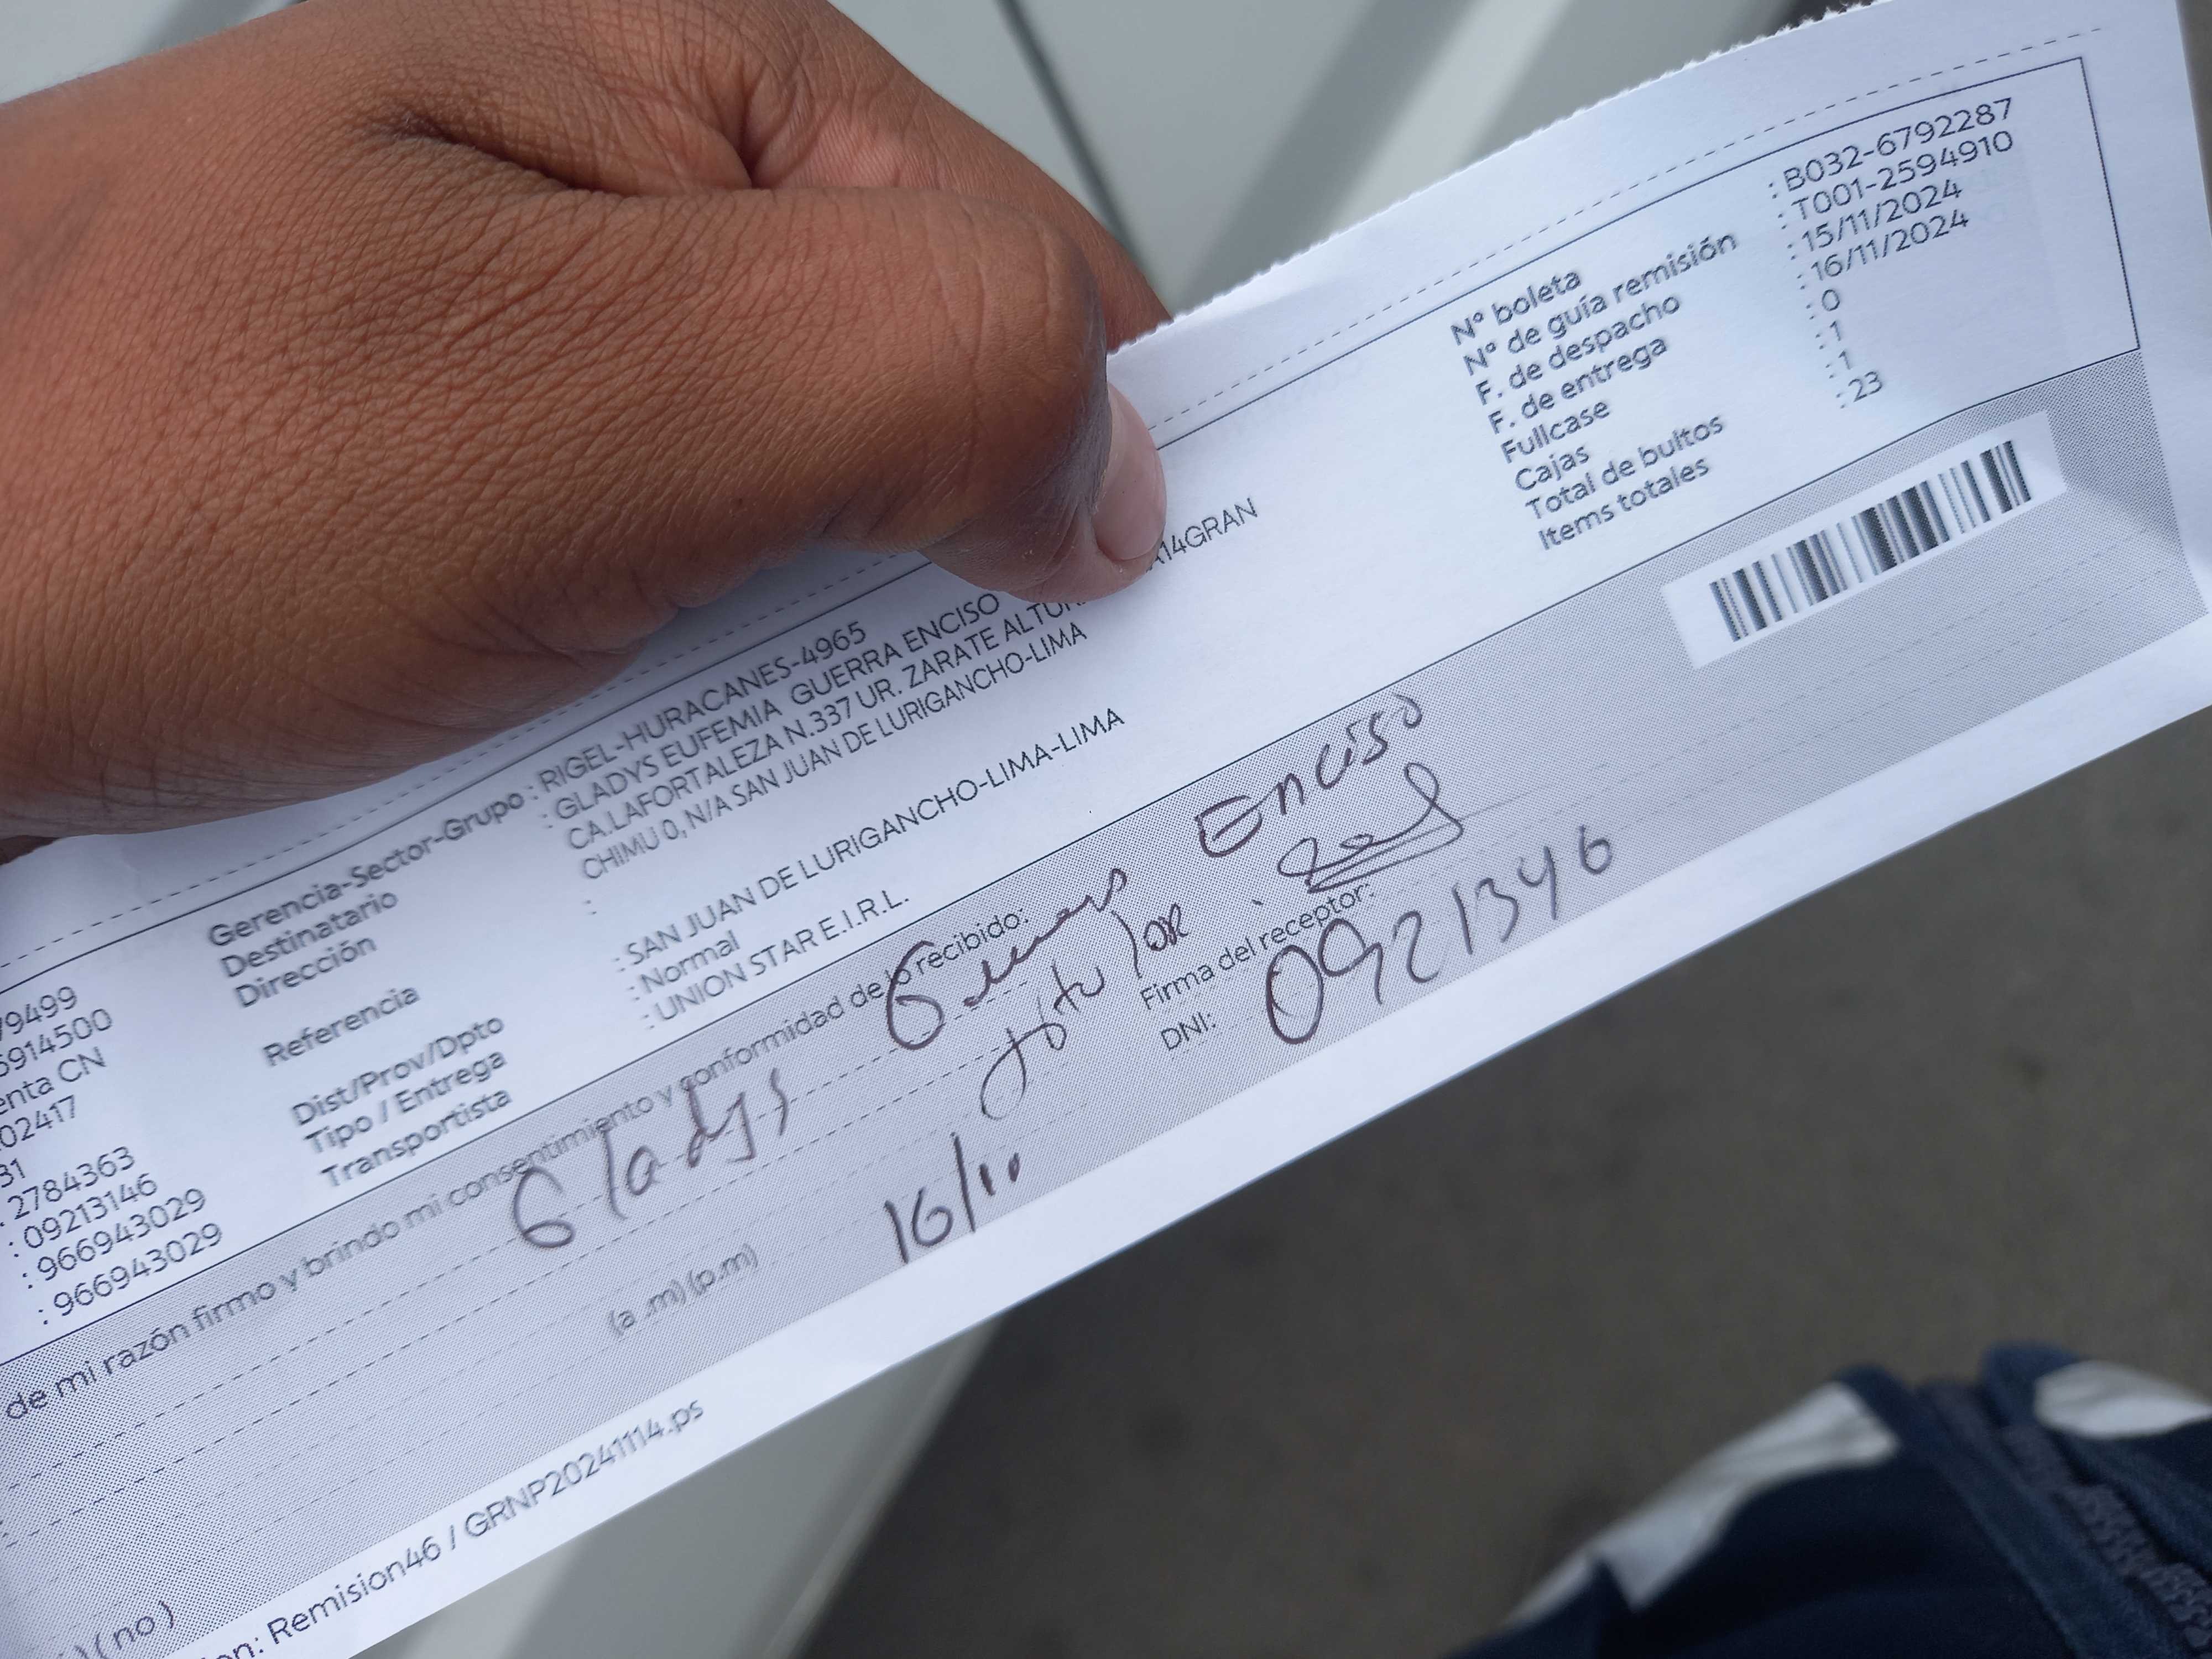 Gerencia-Sector-Grupo : RIGEL-HURACANES-4965
Destinatario : GLADYS EUFEMIA GUERRA ENCISO
Dirección CA.LAFORTALEZA N.337 UR. ZARATE ALTUR A14GRAN
CHIMU 0, N/A SAN JUAN DE LURIGANCHO-LIMA
Referencia :
Dist/Prov/Dpto : SAN JUAN DE LURIGANCHO-LIMA-LIMA
Tipo / Entrega : Normal
Transportista : UNION STAR E.I.R.L.
N° boleta : B032-6792287
N° de guía remisión : T001-2594910
F. de despacho : 15/11/2024
F. de entrega : 16/11/2024
Fullcase : 0
Cajas : 1
Total de bultos : 1
Items totales : 23
79499
5914500
enta CN
02417
31
: 2784363
: 09213146
: 966943029
: 966943029
de mi razón firmo y brindo mi consentimiento y conformidad de lo recibido:
Gladys Enciso
titular
Firma del receptor:
DNI: 09213146
(a .m) (p.m)
16/11
) ( no )
on: Remision46 / GRNP20241114.ps